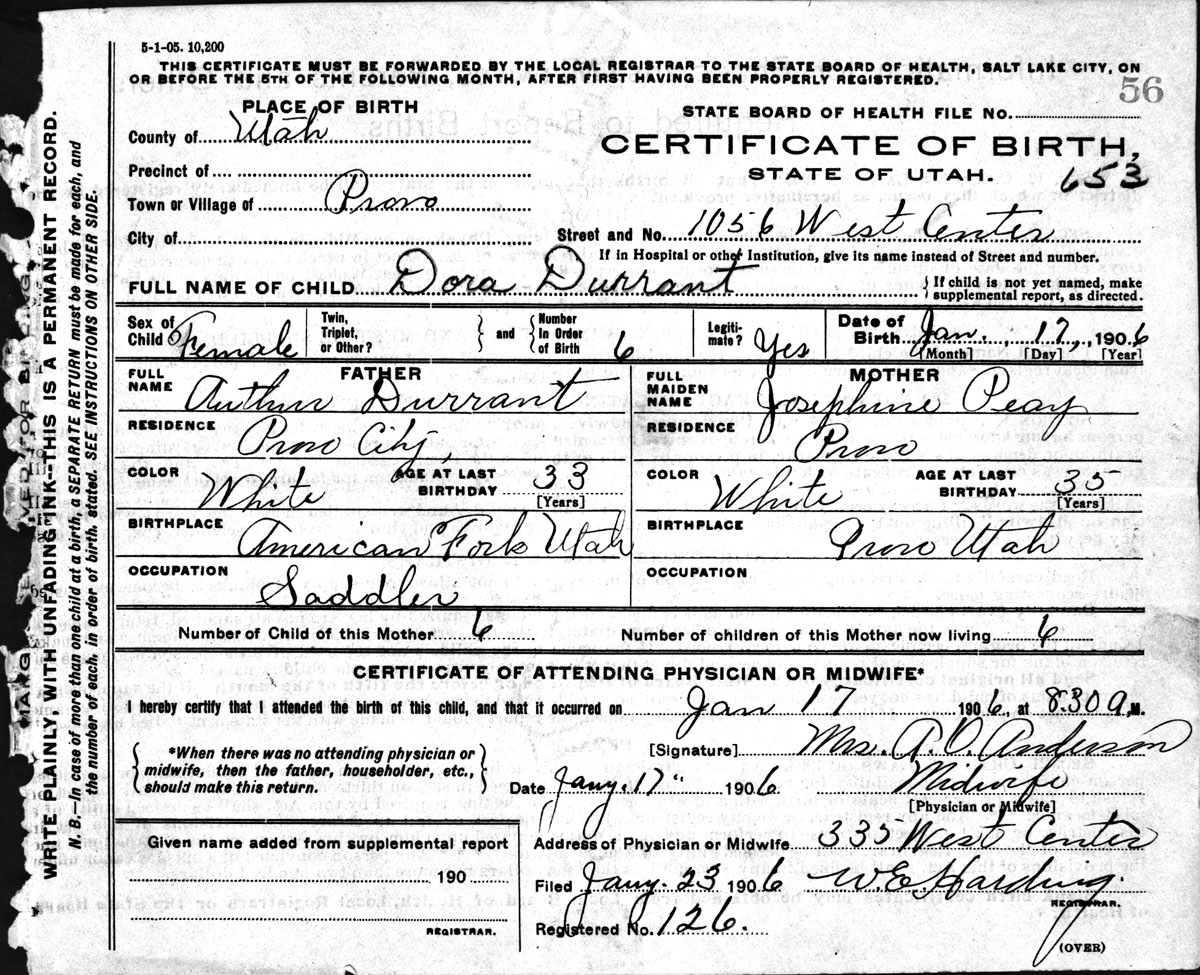 5-1-05. 10,200
THIS CERTIFICATE MUST BE FORWARDED BY THE LOCAL REGISTRAR TO THE STATE BOARD OF HEALTH, SALT LAKE CITY, ON
OR BEFORE THE 5TH OF THE FOLLOWING MONTH, AFTER FIRST HAVING BEEN PROPERLY REGISTERED.
56
PLACE OF BIRTH
County of Utah
Precinct of
Town or Village of Provo
City of
STATE BOARD OF HEALTH FILE No.
CERTIFICATE OF BIRTH,
STATE OF UTAH. 653
Street and No. 1056 West Center
If in Hospital or other Institution, give its name instead of Street and number.
FULL NAME OF CHILD Dora Durrant
{ If child is not yet named, make
supplemental report, as directed.
Sex of Child Female
Twin, Triplet, or Other? } and { Number In Order of Birth 6
Legiti-mate? Yes
Date of Birth Jan. 17, 1906
[Month] [Day] [Year]
FATHER
FULL NAME Arthur Durrant
RESIDENCE Provo City,
COLOR White AGE AT LAST BIRTHDAY 33 [Years]
BIRTHPLACE American Fork Utah
OCCUPATION Saddler
MOTHER
FULL MAIDEN NAME Josephine Peay
RESIDENCE Provo
COLOR White AGE AT LAST BIRTHDAY 35 [Years]
BIRTHPLACE Provo Utah
OCCUPATION
Number of Child of this Mother 6 Number of children of this Mother now living 6
CERTIFICATE OF ATTENDING PHYSICIAN OR MIDWIFE*
I hereby certify that I attended the birth of this child, and that it occurred on Jan 17 1906, at 8.30 a, M.
{ *When there was no attending physician or
midwife, then the father, householder, etc.,
should make this return. }
[Signature] Mrs. A. O. Anderson
Date Jany. 17" 1906. Midwife
[Physician or Midwife]
Given name added from supplemental report
190
REGISTRAR.
Address of Physician or Midwife 335 West Center
Filed Jany. 23 1906 W. E. Harding.
REGISTRAR.
Registered No. 126.
(OVER)
WRITE PLAINLY WITH UNFADING INK--THIS IS A PERMANENT RECORD.
N. B.—In case of more than one child at a birth, a SEPARATE RETURN must be made for each, and
the number of each, in order of birth, stated. SEE INSTRUCTIONS ON OTHER SIDE.